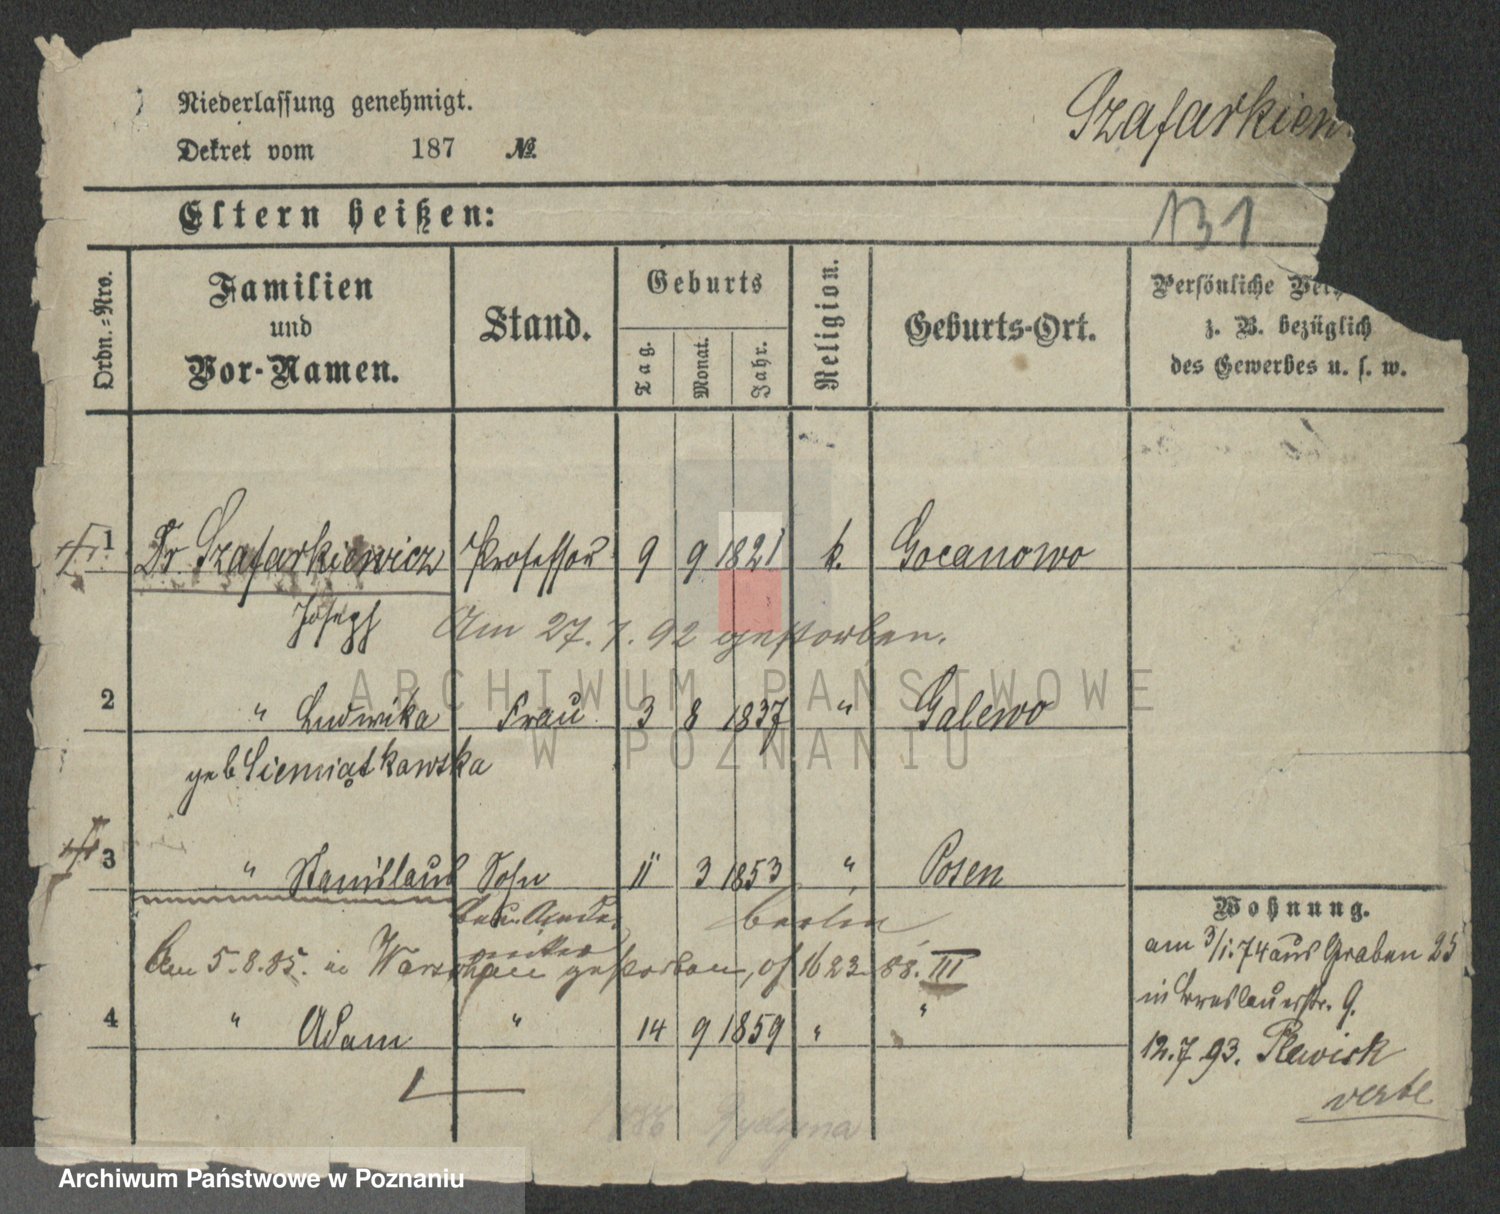 Niederlassung genehmigt.
Dekret vom 187 №
Szafarkien
131
Eltern heißen:
Ordn.=Nro.
Familien
und
Vor-Namen.
Stand.
Geburts
Tag.
Monat.
Jahr.
Religion.
Geburts-Ort.
Persönliche
z. B. bezüglich
des Gewerbes u. s. w.
1 Dr Szafarkiewicz Professor 9 9 1821 k. Gocanowo
Joseph Am 27. 7. 92 gestorben.
2 " Ludwika Frau 3 8 1837 " Galewo
geb Siemiątkowska
3 " Stanislaus Sohn 11 3 1853 " Posen
Berlin
Am 5.8.85. in Warschau gestorben, 1623. 88. III
4 " Adam " 14 9 1859 " "
Wohnung.
am 3/1.74 aus Graben 25
in Breslauerstr. 9.
12.7 93. Rewisk
verte
ARCHIWUM PAŃSTWOWE
W POZNANIU
Archiwum Państwowe w Poznaniu